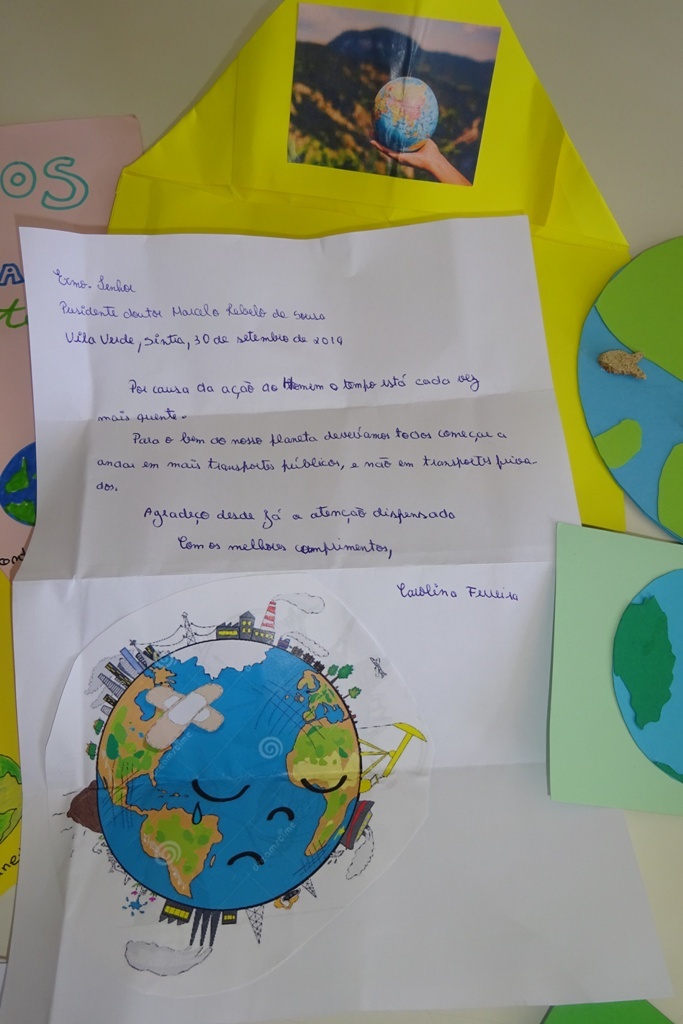 OS
A
Exmo. Senhor
Presidente doutor Marcelo Rebelo de Sousa
Vila Verde, Sintra, 30 de setembro de 2019
Por causa da ação do Homem o tempo está cada vez
mais quente.
Para o bem do nosso planeta deveríamos todos começar a
andar em mais transportes públicos, e não em transportes priva-
dos.
Agradeço desde já a atenção dispensado
Com os melhores comprimentos,
Carolina Ferreira
dreamstime